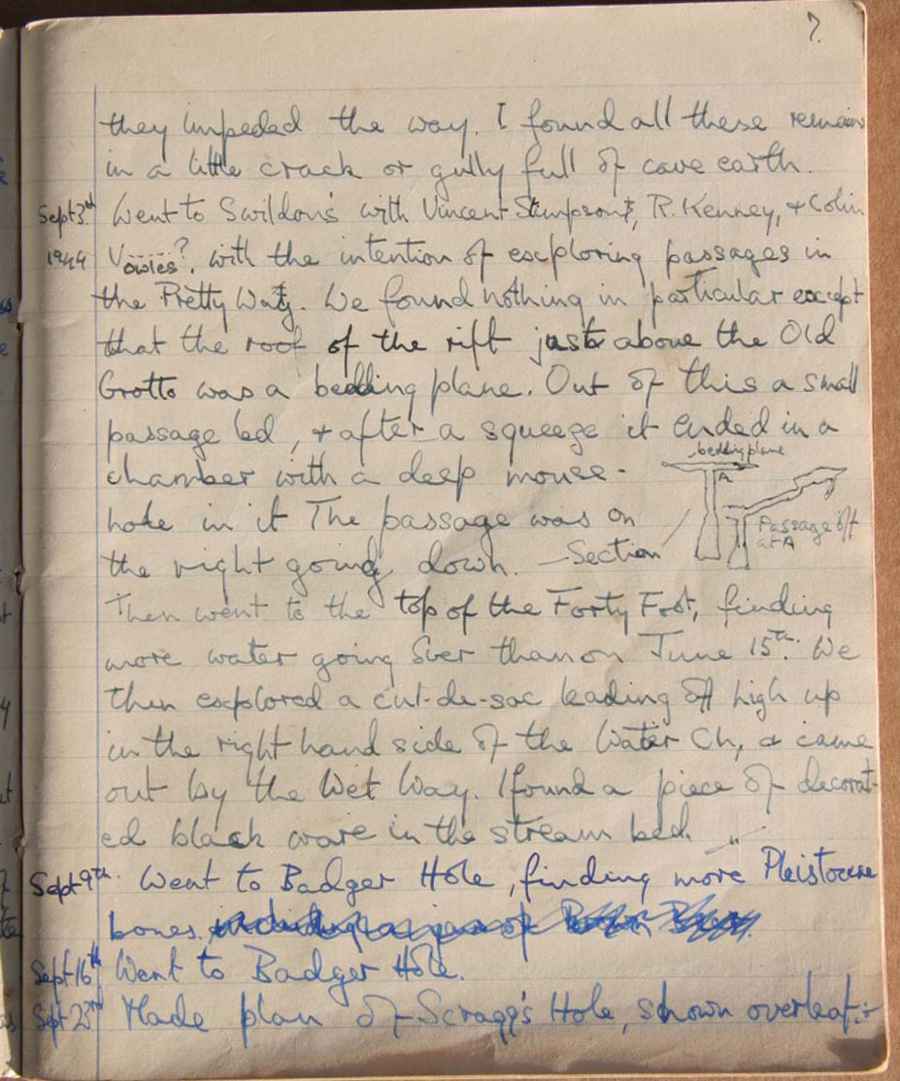 7.
they impeded the way. I found all these remains
in a little crack or gully full of cave earth.
Sept 3rd Went to Swildons with Vincent Stimpson, R. Kenney, + Colin
1944 Vowles?, with the intention of exploring passages in
the Pretty Way. We found nothing in particular except
that the roof of the rift just above the Old
Grotto was a bedding plane. Out of this a small
passage led, + after a squeeze it ended in a
bedding plane
chamber with a deep mouse-
A
hole in it The passage was on
Passage off
at A
the right going down. —Section
Then went to the top of the Forty Foot, finding
more water going over than on June 15th. We
then explored a cul-de-sac leading off high up
in the right hand side of the Water Ch, & came
out by the Wet Way. I found a piece of decorat-
ed black ware in the stream bed.
Sept 9th. Went to Badger Hole, finding more Pleistocene
bones.
Sept 16th Went to Badger Hole.
Sept 23rd Made plan of Scragg's Hole, shown overleaf:-